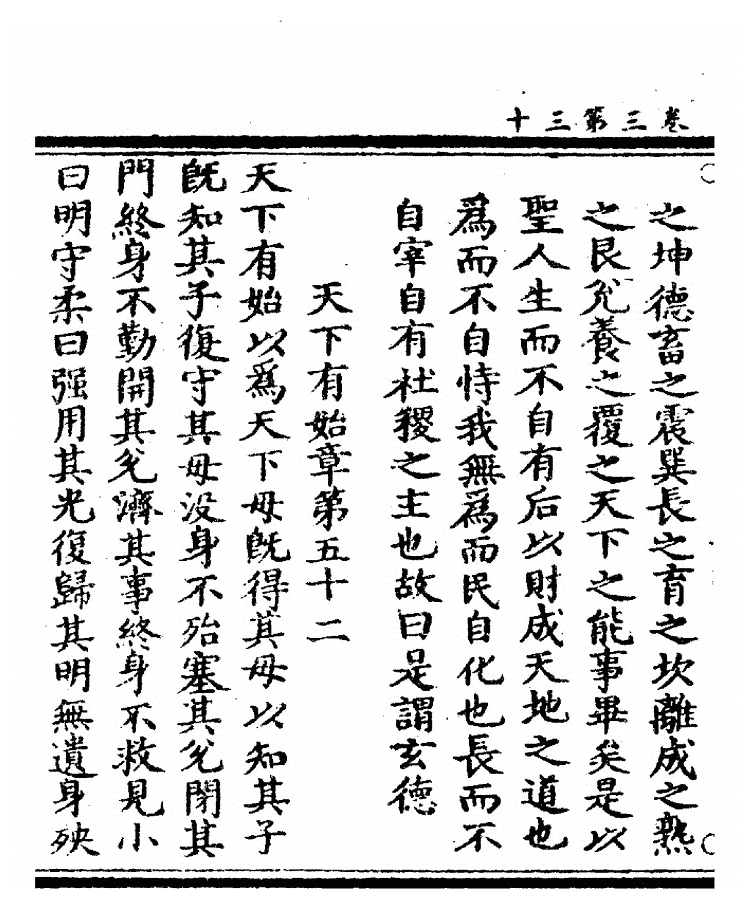 卷三第三十
之坤德畜之震巽長之育之坎離成之熟
之艮兌養之覆之天下之能事畢矣是以
聖人生而不自有后以財成天地之道也
爲而不自恃我無爲而民自化也長而不
自宰自有社稷之主也故曰是謂玄德
天下有始章第五十二
天下有始以爲天下母旣得其母以知其子
旣知其子復守其母没身不殆塞其兌閉其
門終身不勤開其兌濟其事終身不救見小
曰明守柔曰强用其光復歸其明無遺身殃